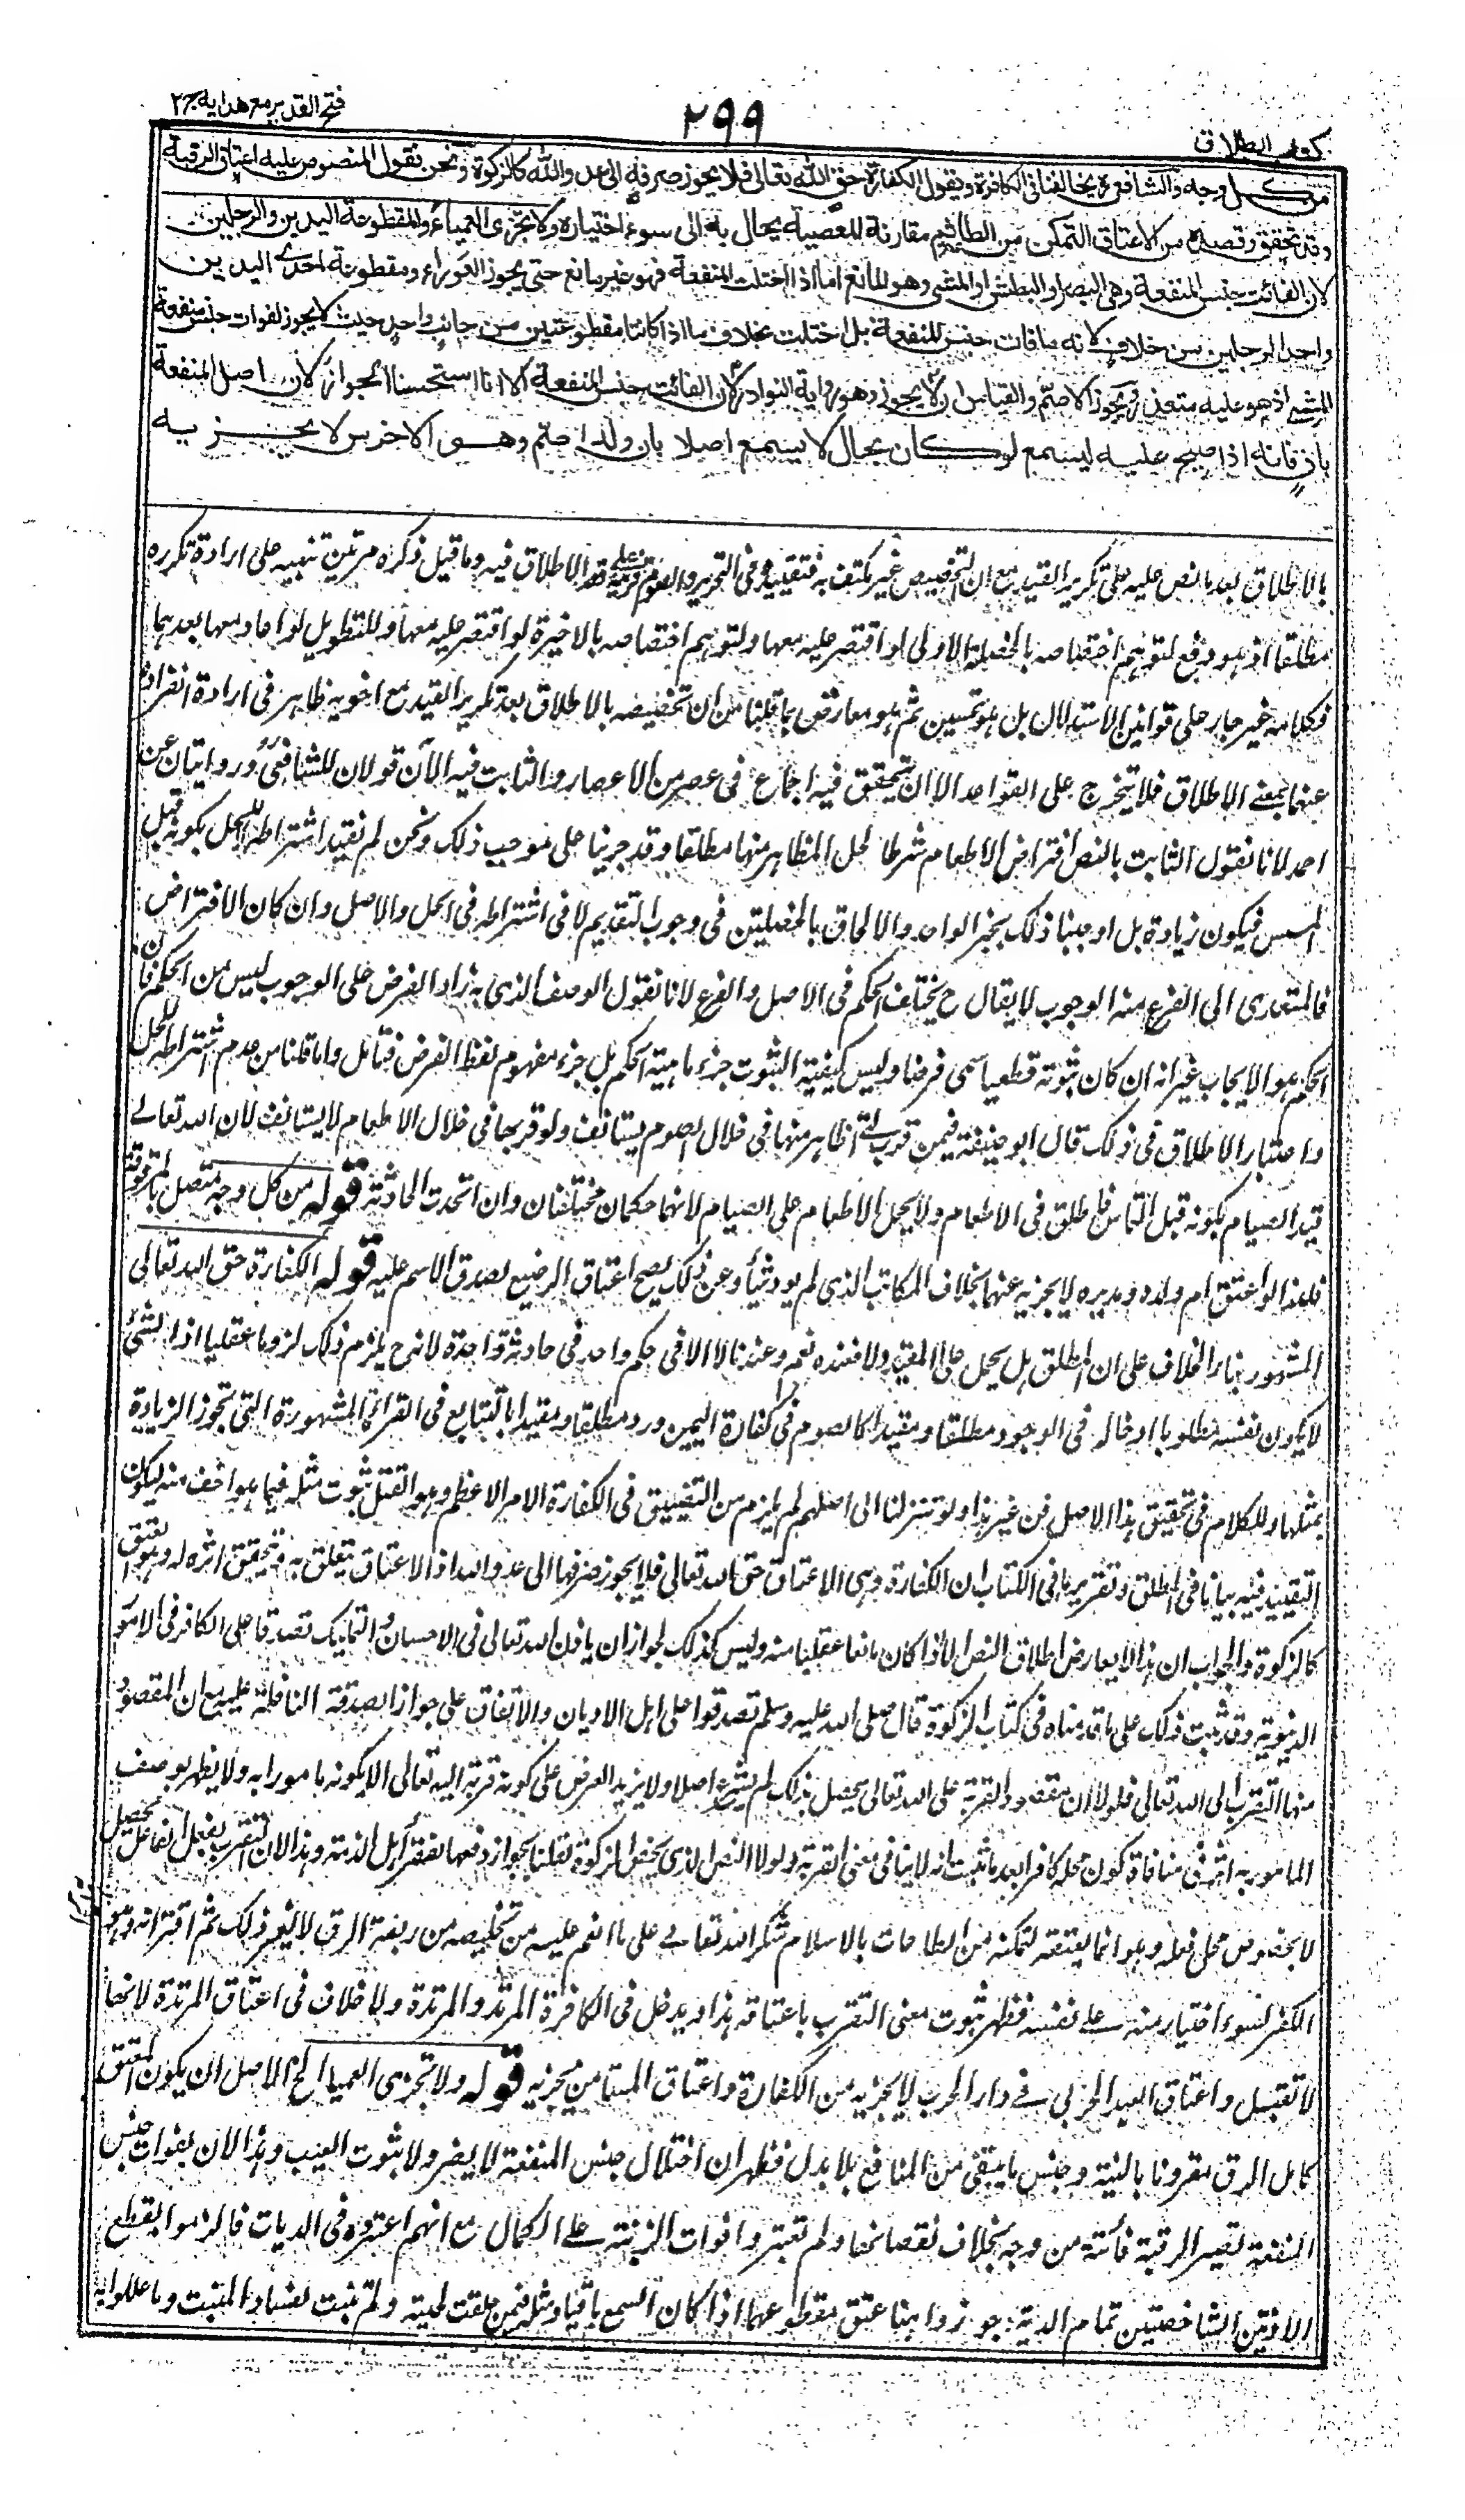 كتاب الطلاق
٢٩٩
فتح القدير مع هدايه ج٢
من كل وجه والشافعي يخالفنا في الكافرة ويقول الكفارة حق الله تعالى فلا يجوز صرفه الى عدو الله كالزكوة ونحن نقول المنصوص عليه اعتاق الرقبة
وقد تحقق وقصده من الاعتاق التمكن من الطاعة ثم مقارنة المعصية يحال به الى سوء اختياره ولا تجزى العمياء والمقطوعة اليدين والرجلين
لان الفائت جنس المنفعة وهي البصر او البطش او المشي وهو المانع اما اذا اختلت المنفعة فهو غير مانع حتى يجوز العوراء ومقطوعة احدى اليدين
واحد الرجلين من خلاف لانه ما فات جنس المنفعة بل اختلت بخلاف ما اذا كانتا مقطوعتين من جانب واحد حيث لا يجوز لفوات جنس منفعة
المشي اذ هو عليه متعذر ويجوز الاصم والقياس ان لا يجوز وهو رواية النوادر لان الفائت جنس المنفعة الا انا استحسنا الجواز لان اصل المنفعة
باق فانه اذا صيح عليه ليسمع لو كان بحال لا يسمع اصلا بان ولد اصم وهو الاخرس لا يجزيه
بالاطلاق بعد ما نص عليه على تكرير القيد مع ان التخصيص غير مكتف به فتقييده في التحرير والصوم الاطلاق فيه وما قيل ذكره مرتين تنبيه على ارادة تكرره
مطلقا اذ هو دفع لتوهم اختصاصه بالخصلة الاولى لو اقتصر عليه معها ولتوهم اختصاصه بالاخيرة لو اقتصر عليه معها وللتطويل لو اعاد معها بعدهما
فكلامه غير جار على قوانين الاستدلال بل هو تحسين ثم هو معارض بما قلنا من ان تخصيصه بالاطلاق بعد تكرير القيد مع اخويه ظاهر في ارادة انفراده
عنهما بمعنى الاطلاق فلا يتخرج على القواعد الا ان يتحقق فيه اجماع في عصر من الاعصار والثابت فيه الآن قولان للشافعي وروايتان عن
احمد لانا نقول الثابت بالنص افتراض الاطعام شرطا لحل المظاهر منها مطلقا وقد جرينا على موجب ذلك ونحن لم نقيد اشتراطه للحل بكونه قبل
المسيس فيكون زيادة بل اوجبنا ذلك بخبر الواحد والالحاق بالخصلتين في وجوب التقديم لا في اشتراطه في الحل والاصل وان كان الافتراض
فالمتعدى الى الفرع منه الوجوب لا يقال ح يختلف الحكم في الاصل والفرع لانا نقول الوصف الذي به زاد الفرض على الوجوب ليس من الحكم فان
الحكم هو الايجاب غير انه ان كان ثبوته قطعيا سمى فرضا وليس كيفية الثبوت جزء ماهية الحكم بل جزء مفهوم لفظ الفرض فتأمل ولما قلنا من عدم اشتراطه للحل
واعتبار الاطلاق في ذلك قال ابو حنيفة فيمن قرب التي ظاهر منها في خلال الصوم يستانف ولو قربها في خلال الاطعام لا يستانف لان الله تعالى
قيد الصيام بكونه قبل التماس واطلق في الاطعام ولا يحمل الاطعام على الصيام لانهما حكمان مختلفان وان اتحدت الحادثة قوله من كل وجه متصل بالمرقوق
فلهذا لو اعتق ام ولده ومدبره لا يجزيه عنها بخلاف المكاتب الذي لم يود شيأ وعن ذلك يصح اعتاق الرضيع لصدق الاسم عليه قوله الكفارة حق الله تعالى
المشهور بناء الخلاف على ان المطلق هل يحمل على المقيد ولا فعنده نعم وعندنا لا الا في حكم واحد في حادثة واحدة لانه ح يلزم ذلك لزوما عقليا اذ الشئ
لا يكون نفسه مطلوبا ادخاله في الوجود مطلقا ومقيدا كالصوم في كفارة اليمين ورد مطلقا ومقيدا بالتتابع في القراءة المشهورة التي تجوز الزيادة
بمثلها وللكلام في تحقيق هذا الاصل فن غير هذا ولو تنزلنا الى اصلهم لم يلزم من التضييق في الكفارة الامر الاعظم وهو القتل ثبوت مثله فيما هو اخف منه ليكون
التقييد فيه بيانا في المطلق وتقرير ما في الكتاب ان الكفارة وهي الاعتاق حق الله تعالى فلا يجوز صرفها الى عدو الله اذ الاعتاق يتعلق به ويتحقق اثره له وهو العتق
كالزكوة والجواب ان هذا لا يعارض اطلاق النص الا اذا كان مانعا عقليا منه وليس كذلك لجواز ان ياذن الله تعالى في الاحسان والتمليك تصدقا على الكافر في الامور
الدنيوية وقد ثبت ذلك على ما قدمناه في كتاب الزكوة قال صلى الله عليه وسلم تصدقوا على اهل الاديان والاتفاق على جواز الصدقة النافلة عليه مع ان المقصود
منها التقرب الى الله تعالى فلولا ان مقصود القربة على الله تعالى يحصل بذلك لم يشرع اصلا ولا يزيد الفرض على كونه قربة اليه تعالى الا بكونه مامورا به ولا يظهر لوصف
المامور به اثر في منافاة كون محله كافرا بعد ما ثبت انه لا ينافي معنى القربة ولولا النص الذي يخص الزكوة لقلنا بجواز دفعها لفقراء اهل الذمة وهذا لان التقرب بفعل الفاعل يحصل
لا بخصوص محل فعله وهو انما يعتقه لتمكنه من الطاعات بالاسلام شكرا لله تعالى على ما انعم عليه من تخليصه من ربقة الرق لا لغير ذلك ثم اقترانه وهو
الكفر لسوء اختيار منه على نفسه فظهر ثبوت معنى التقرب باعتاقه هذا ويدخل في الكافرة المرتد والمرتدة ولا خلاف في اعتاق المرتدة لانها
لا تقتل واعتاق العبد الحربي في دار الحرب لا يجزيه من الكفارة واعتاق المستامن يجزيه قوله ولا تجزى العمياء الخ الاصل ان يكون المعتق
كامل الرق مقرونا بالنية وجنس ما يبتغى من المنافع بلا بدل فظهر ان اختلال جنس المنفعة لا يضر ولا بثبوت العيب وهذا لان بفوات جنس
المنفعة تصير الرقبة فائتة من وجه بخلاف نقصانها ولم تعتبروا فوات الزينة على الكمال مع انهم اعتبروه في الديات فالزموا بقطع
الاذنين الشاخصتين تمام الدية جوزوا هنا عتق مقطوعهما اذا كان السمع باقيا ومثله فيمن حلقت لحيته ولم تنبت لفساد المنبت وما عللوا به